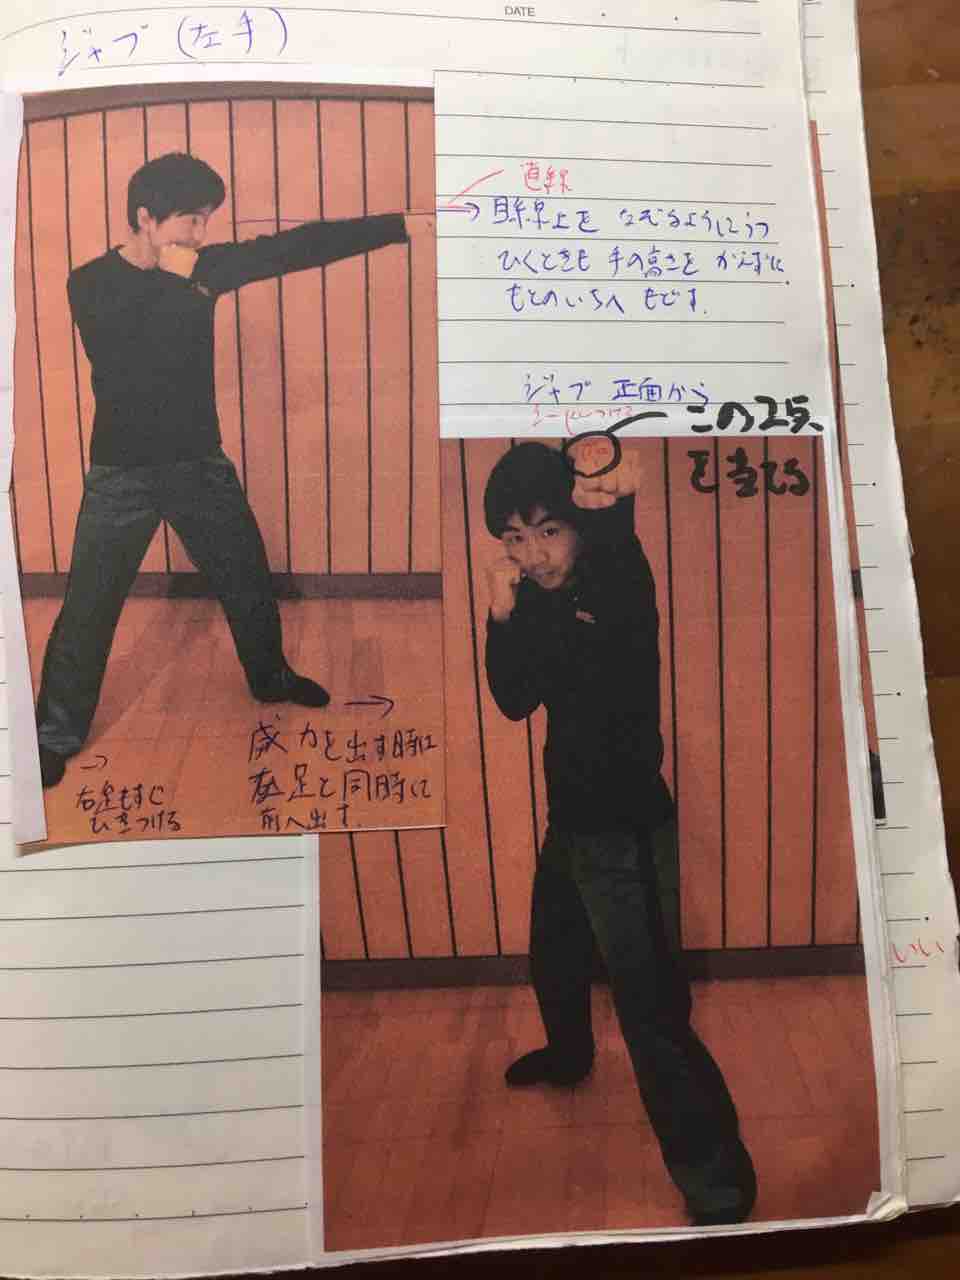 DATE
ジャブ (左手)
直線
→ 目線上を なぞるようにうつ
ひくときも 手の高さを かえずに
もとのいちへ もどす.
ジャブ 正面から
この2点
を当てる
→
威力を出す時は
左足と同時に
前へ出す.
→
右足もすぐ
ひきつける
いい